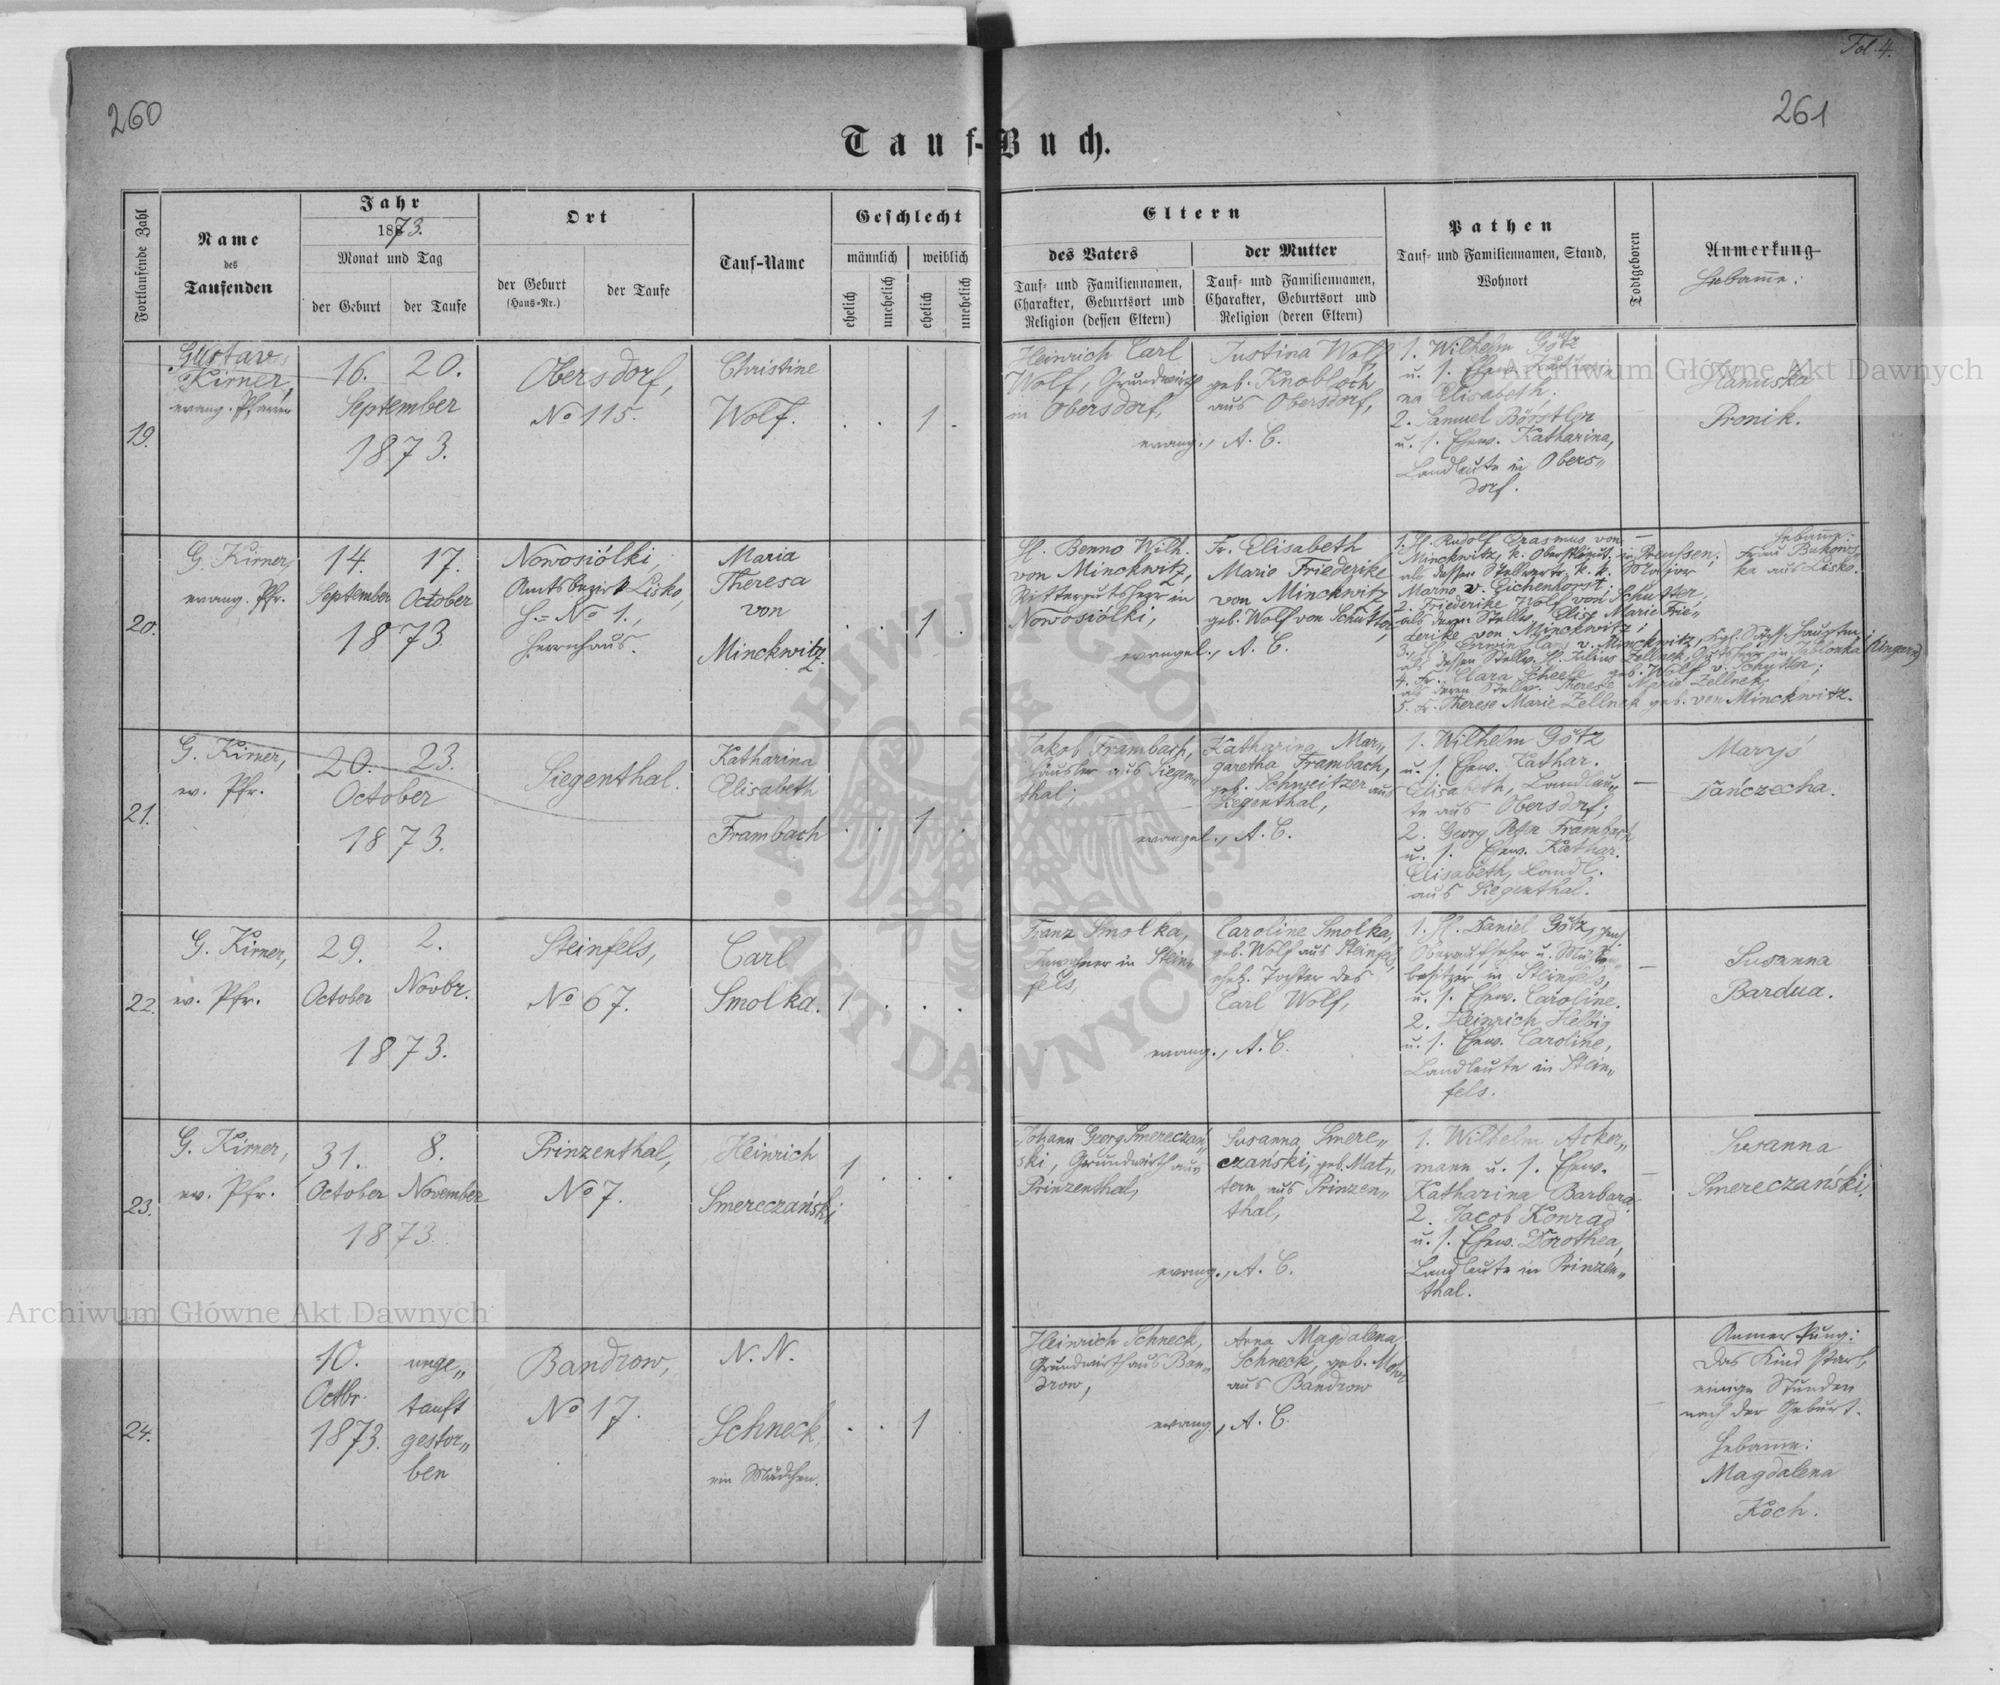 Fol. 4.
260
261
Tauf-Buch.
Fortlaufende Zahl
Name
des
Taufenden
Jahr
1873.
Monat und Tag
der Geburt
der Taufe
Ort
der Geburt
(Haus-Nr.)
der Taufe
Tauf-Name
Geschlecht
männlich
weiblich
ehelich
unehelich
ehelich
unehelich
Eltern
des Vaters
Tauf- und Familiennamen,
Charakter, Geburtsort und
Religion (dessen Eltern)
der Mutter
Tauf- und Familiennamen,
Charakter, Geburtsort und
Religion (deren Eltern)
Pathen
Tauf- und Familiennamen, Stand,
Wohnort
Todtgeboren
Anmerkung
Hebamme:
19.
Gustav
Kirner,
evang. Pfarrer
16.
20.
September
1873.
Obersdorf,
No 115.
Christine
Wolf.
1
Heinrich Carl
Wolf, Grundwirth
in Obersdorf,
Justina Wolf
geb. Knobloch
aus Obersdorf,
evang., A. C.
1. Wilhelm Götz
u. s. Ehew. Kathari-
na Elisabeth;
2. Samuel
u. s. Ehew. Katharina,
Landleute in Obers„
dorf.
Hanuska
Pronik.
20.
G. Kirner,
evang. Pfr.
14.
September
17.
October
1873
Nowosiółki,
Amtsbezirk Lisko,
H.= No 1.,
Herrnhaus.
Maria
Theresa
von
Minckwitz.
1
H. Benno Wilh.
von Minckwitz,
Rittergutsherr in
Nowosiółki,
Fr. Elisabeth
Marie Friederike
von Minckwitz
geb. Wolf von Schutter,
evangel., A. C.
1. H. Rudolf Erasmus von
Minckwitz, k. Oberstlieut. in Preussen;
als dessen Stellvertr. k. k. Major
Marno v. Eichenhorst;
2. Friederike Wolf von Schutter,
als deren Stellv. Elise Marie Frie„
derike von Minckwitz;
3. H. Erwin Hans v. Minckwitz, Kgl. Sächs. Hauptm.,
als dessen Stellv. H. Julius Zellnek, Gutsherr in Jablonka (Ungarn)
4. Fr. Clara Scheele geb. Wolf v. Schutter;
als deren Stellv. Therese Marie Zellnek;
5. Fr. Therese Marie Zellnek geb. von Minckwitz.
Hebamme:
Frau Bukows„
ka aus Lisko.
21.
G. Kirner,
ev. Pfr.
20.
23.
October
1873.
Siegenthal.
Katharina
Elisabeth
Frambach
1
Jakob Frambach,
Häusler aus Siegen„
thal;
Katharina Mar„
garetha Frambach,
geb. Schweitzer aus
Siegenthal,
evangel., A. C.
1. Wilhelm Götz
u. s. Ehew. Kathar.
Elisabeth, Landleu„
te aus Obersdorf;
2. Georg Peter Frambach
u. s. Ehew. Kathar.
Elisabeth, Landl.
aus Siegenthal.
Maryś
Dańczecha.
22.
G. Kirner,
ev. Pfr.
29.
October
2.
Novbr.
1873.
Steinfels,
No 67.
Carl
Smolka.
1
Franz Smolka,
Inwohner in Stein„
fels,
Caroline Smolka,
geb. Wolf aus Steinfels,
ehel. Tochter des
Carl Wolf,
evang., A. C.
1. H. Daniel Götz,
Oberaufseher u. Mühlen„
besitzer in Steinfels,
u. s. Ehew. Caroline.
2. Heinrich Helbig
u. s. Ehew. Caroline,
Landleute in Stein„
fels.
Susanna
Bardua.
23.
G. Kirner,
ev. Pfr.
31.
October
8.
November
1873.
Prinzenthal,
No 7.
Heinrich
Smereczański
1
Johann Georg Smereczań„
ski, Grundwirth aus
Prinzenthal,
Susanna Smere„
czański, geb. Mat„
tern aus Prinzen„
thal,
evang., A. C.
1. Wilhelm Acker„
mann u. s. Ehew.
Katharina Barbara.
2. Jacob Konrad
u. s. Ehew. Dorothea,
Landleute in Prinzen„
thal.
Susanna
Smereczański.
24.
10.
Octbr.
1873.
unge„
tauft
gestor„
ben
Bandrow,
No 17.
N. N.
Schneck,
ein Mädchen.
1
Heinrich Schneck,
Grundwirth aus Ban„
drow,
Anna Magdalena
Schneck, geb. Mohr
aus Bandrow
evang., A. C.
Anmerkung:
Das Kind starb
einige Stunden
nach der Geburt.
Hebamme:
Magdalena
Koch.
Archiwum Główne Akt Dawnych
Archiwum Główne Akt Dawnych
ARCHIWUM GŁÓWNE AKT DAWNYCH